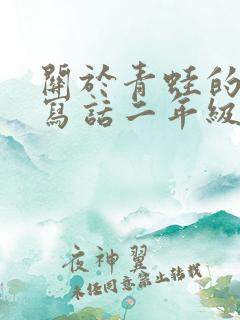 關於青蛙的
寫話二年級
夜神翼
未經同意禁止轉載